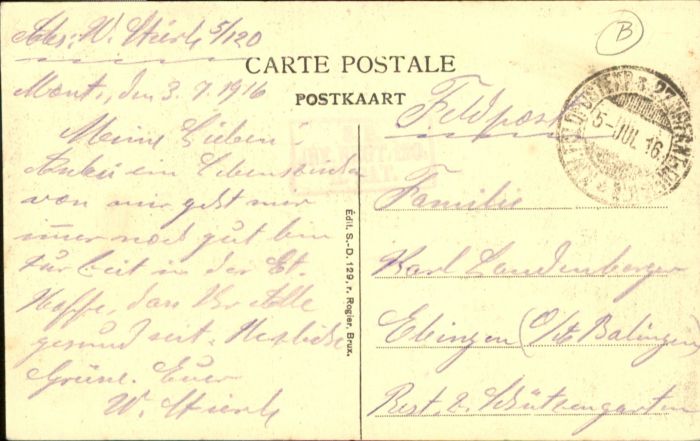 Abs: W. Stierle 5/120
B
CARTE POSTALE
POSTKAART
Mont, den 3.7.1916
Meine Lieben!
ein Lebenszeichen
von mir geht mir
imer noch gut bin
zur Zeit in der Et.
Hoffe, das Ihr Alle
gesund seit. Herzliche
Grüsse. Euer
W. Stierle
Édit. S.-D. 129, r. Rogier, Brux.
Feldpost
5-JUL 16
Familie
Karl Landenberger
Ebingen (O/A Balingen)
Rest. z. Schützengarten